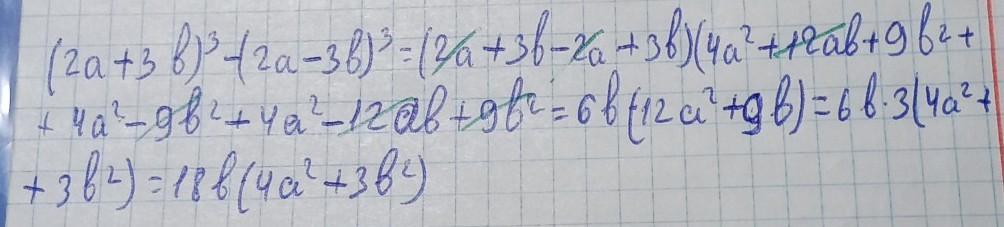 (2a+3b)³-(2a-3b)³=(2a+3b-2a+3b)(4a²+12ab+9b²+
+4a²-9b²+4a²-12ab+9b²=6b(12a²+9b)=6b·3(4a²+
+3b²)=18b(4a²+3b²)